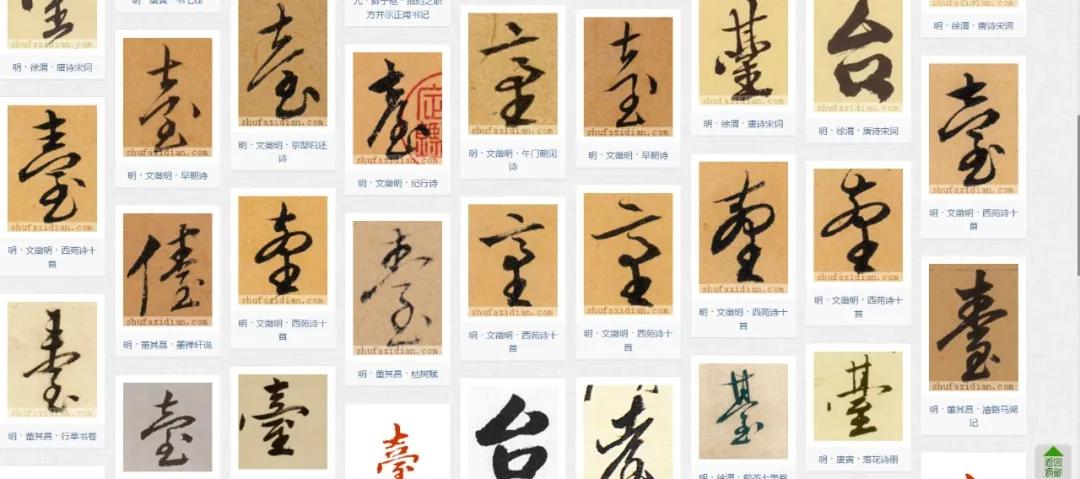 shufazidian.com
明 · 徐渭 · 唐诗宋词
臺
shufazidian.com
明 · 文徵明 · 西苑诗十
首
臺
shufazidian.com
明 · 董其昌 · 行草书卷
臺
shufazidian.com
明 · 文徵明 · 早朝诗
儓
shufazidian.com
明 · 董其昌 · 墨禅轩说
臺
臺
shufazidian.com
明 · 文徵明 · 京邸归还
诗
臺
shufazidian.com
明 · 文徵明 · 西苑诗十
首
臺
方并示正甫书记
臺
shufazidian.com
明 · 文徵明 · 纪行诗
臺
shufazidian.com
明 · 董其昌 · 枯树赋
臺
臺
shufazidian.com
明 · 文徵明 · 午门朝见
诗
臺
shufazidian.com
明 · 文徵明 · 西苑诗十
首
台
臺
shufazidian.com
明 · 文徵明 · 早朝诗
臺
shufazidian.com
明 · 文徵明 · 西苑诗十
首
臺
shufazidian.com
明 · 徐渭 · 唐诗宋词
臺
shufazidian.com
明 · 文徵明 · 西苑诗十
首
shufazidian.com
台
shufazidian.com
明 · 徐渭 · 唐诗宋词
臺
shufazidian.com
明 · 文徵明 · 西苑诗十
首
shufazidian.com
明 · 唐寅 · 落花诗册
shufazidian.com
明 · 徐渭 · 唐诗宋词
臺
shufazidian.com
明 · 文徵明 · 西苑诗十
首
臺
shufazidian.com
明 · 董其昌 · 浯路马湖
记
返回
顶部